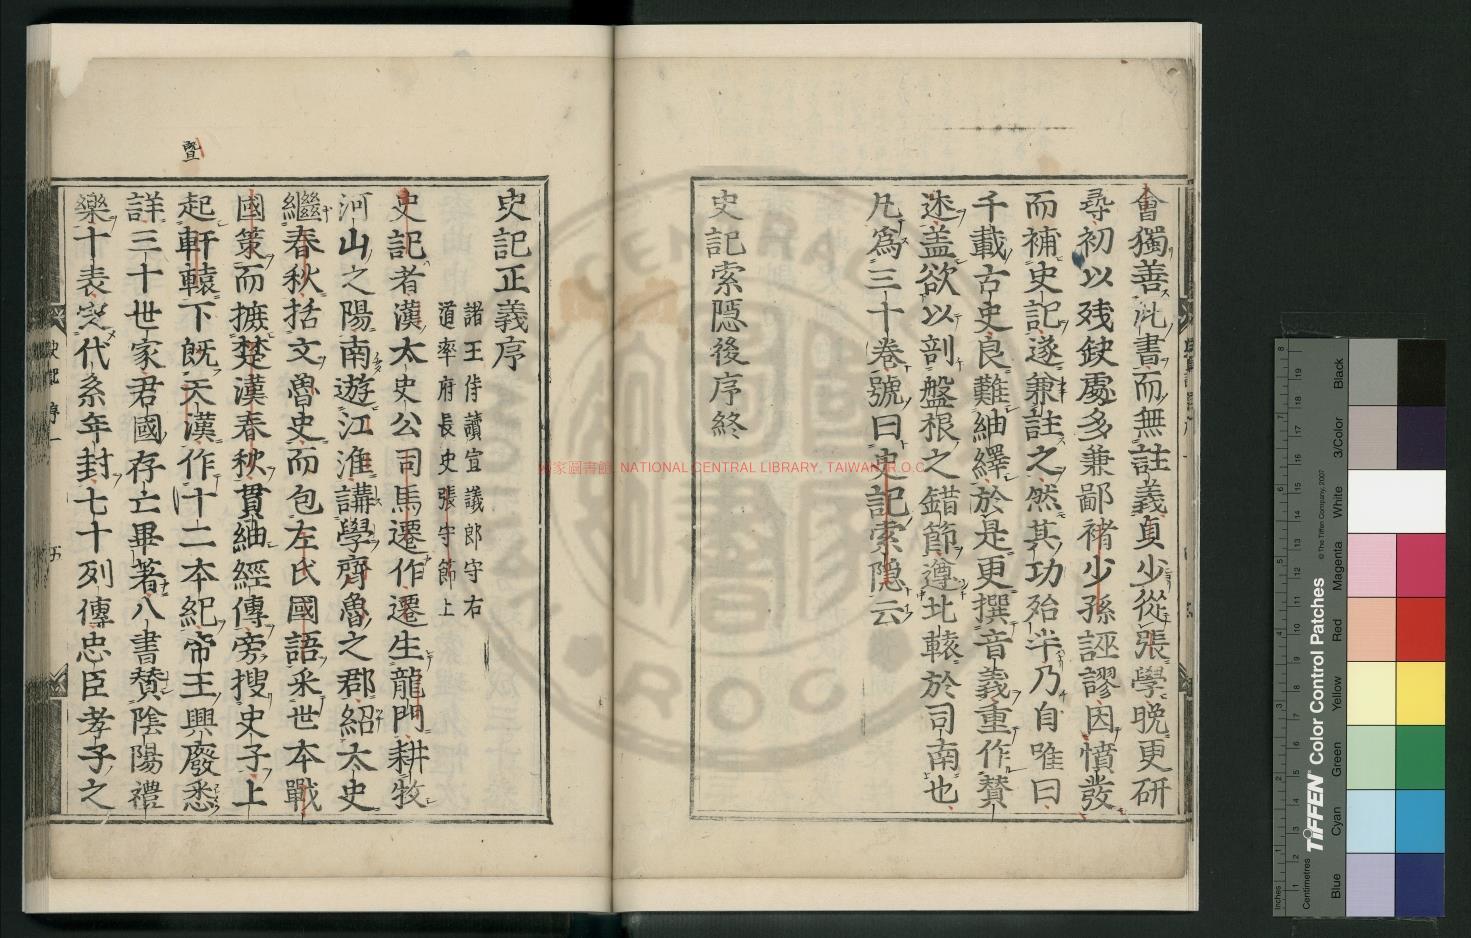 會獨善此書而無註義貞少從張學晚更研
尋初以残鈌處多兼鄙褚少孫誣謬因憤發
而補史記遂兼註之然其功殆半乃自唯曰
千載古史良難紬繹於是更撰音義重作賛
述盖欲以剖盤根之錯節遵北轅於司南也
凡爲三十卷號曰史記索隠云
史記索隠後序終
史記正義序
諸王侍讀宣議郎守右
道率府長史張守節上
史記者漢太史公司馬遷作遷生龍門耕牧
河山之陽南遊江淮講學齊魯之郡紹太史
繼春秋括文魯史而包左氏國語采世本戰
國策而摭楚漢春秋貫紬經傳旁搜史子上
起軒轅下既天漢作十二本紀帝王興廢悉
詳三十世家君國存亡畢著八書賛陰陽禮
樂十表定代系年封七十列傳忠臣孝子之
暨
國家圖書館, NATIONAL CENTRAL LIBRARY, TAIWAN, R.O.C.
TIFFEN Color Control Patches
© The Tiffen Company, 2007
Inches
Centimetres
Blue
Cyan
Green
Yellow
Red
Magenta
White
3/Color
Black